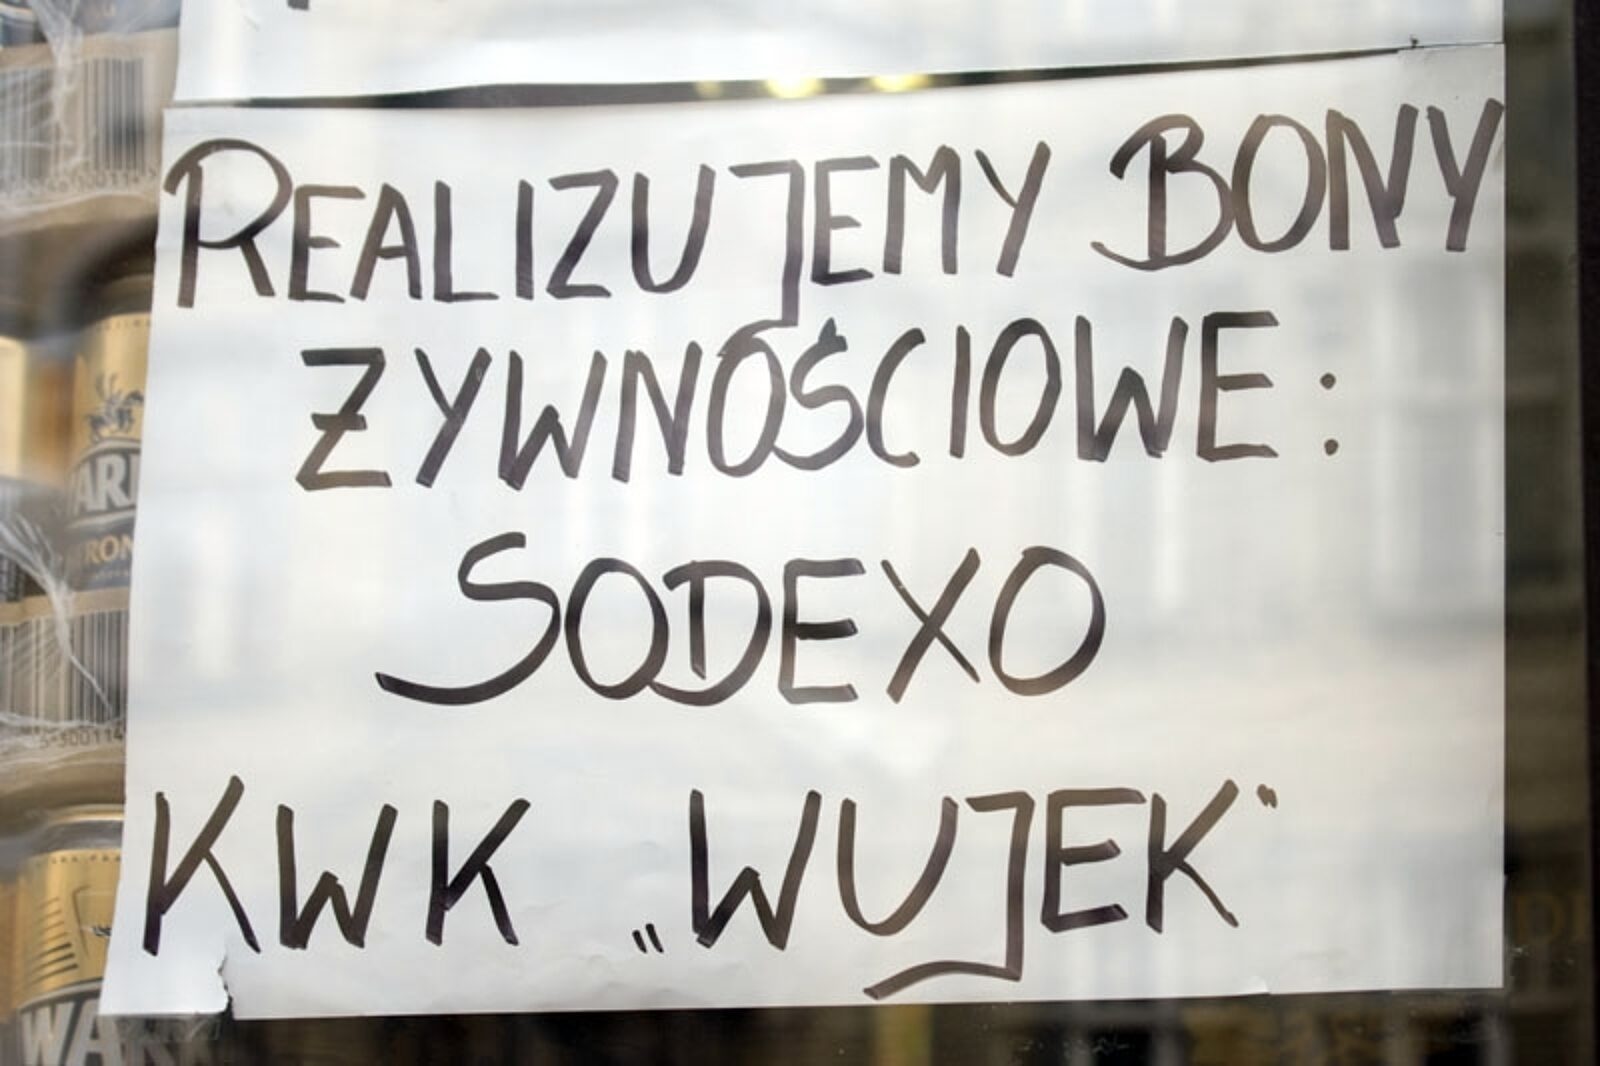 REALIZUJEMY BONY
ŻYWNOŚCIOWE:
SODEXO
KWK „WUJEK"
5-900114
WAR